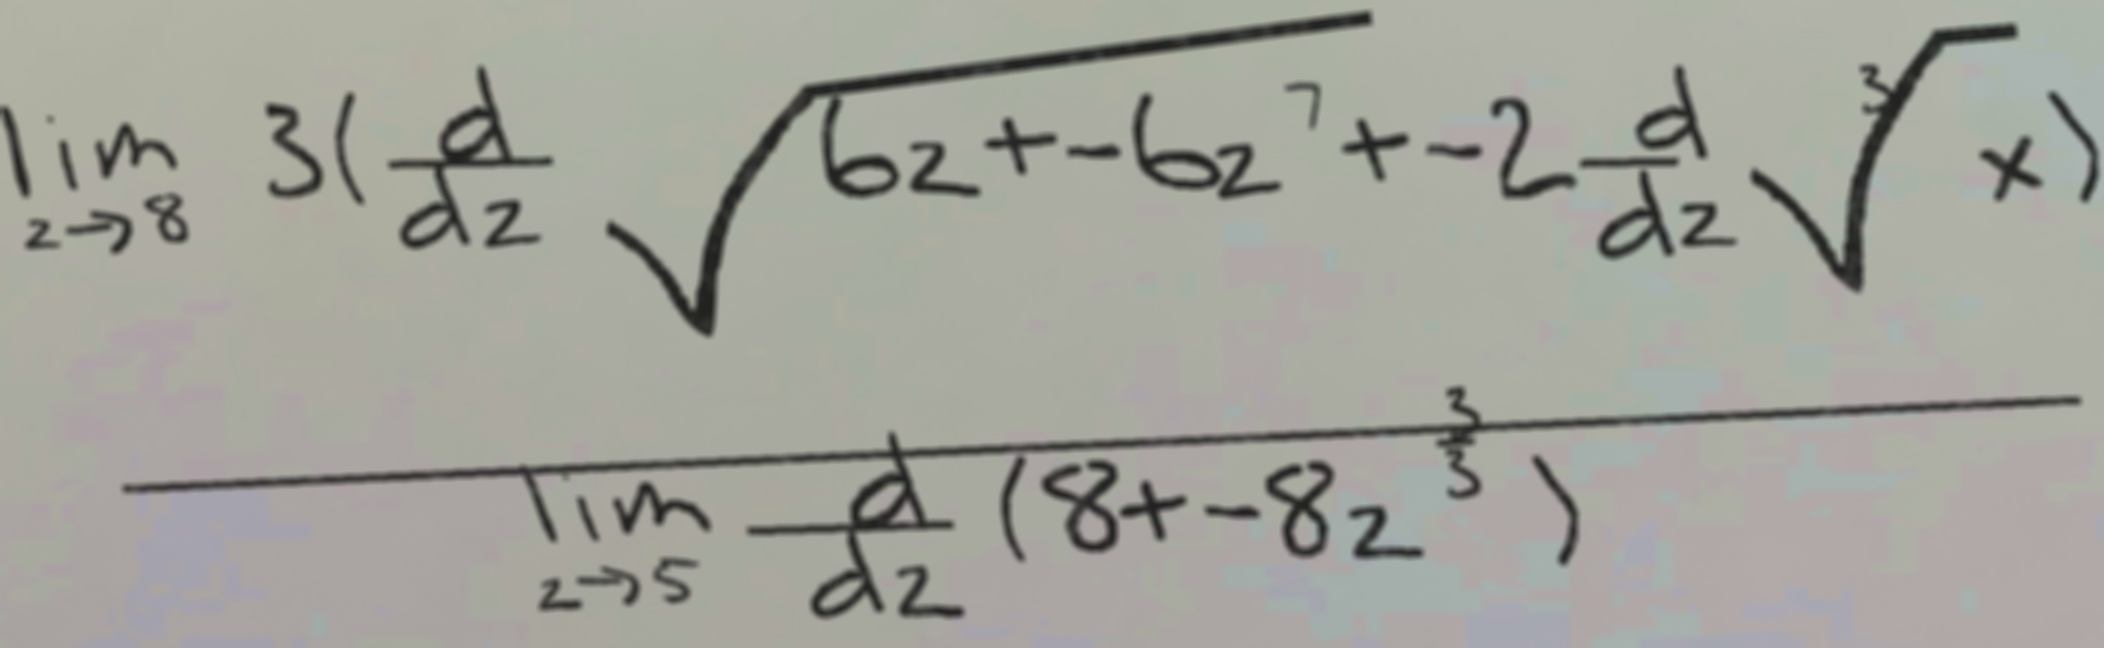 \frac{\lim_{z \to 8} 3(\frac{d}{dz} \sqrt{6z + -6z^7} + -2\frac{d}{dz} \sqrt[3]{x})}{\lim_{z \to 5} \frac{d}{dz} (8 + -8z^{\frac{3}{3}})}